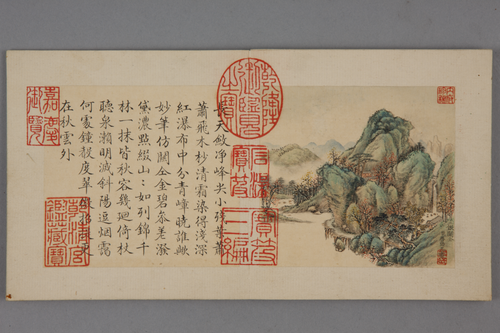 長天斂淨峰尖小殘葉蕭
蕭飛木杪清霜染得淺深
紅瀑布中分青嶂曉誰歟
妙筆仿關仝金碧參差潑
黛濃點綴山:如列錦千
林一抹皆秋容幾廻倚杖
聽泉瀨明滅斜陽追烟靄
何處鐘殷度翠微
在秋雲外
乾隆御覽之寶
石渠寶笈
寶笈三編
嘉慶御覽
鑑藏寶